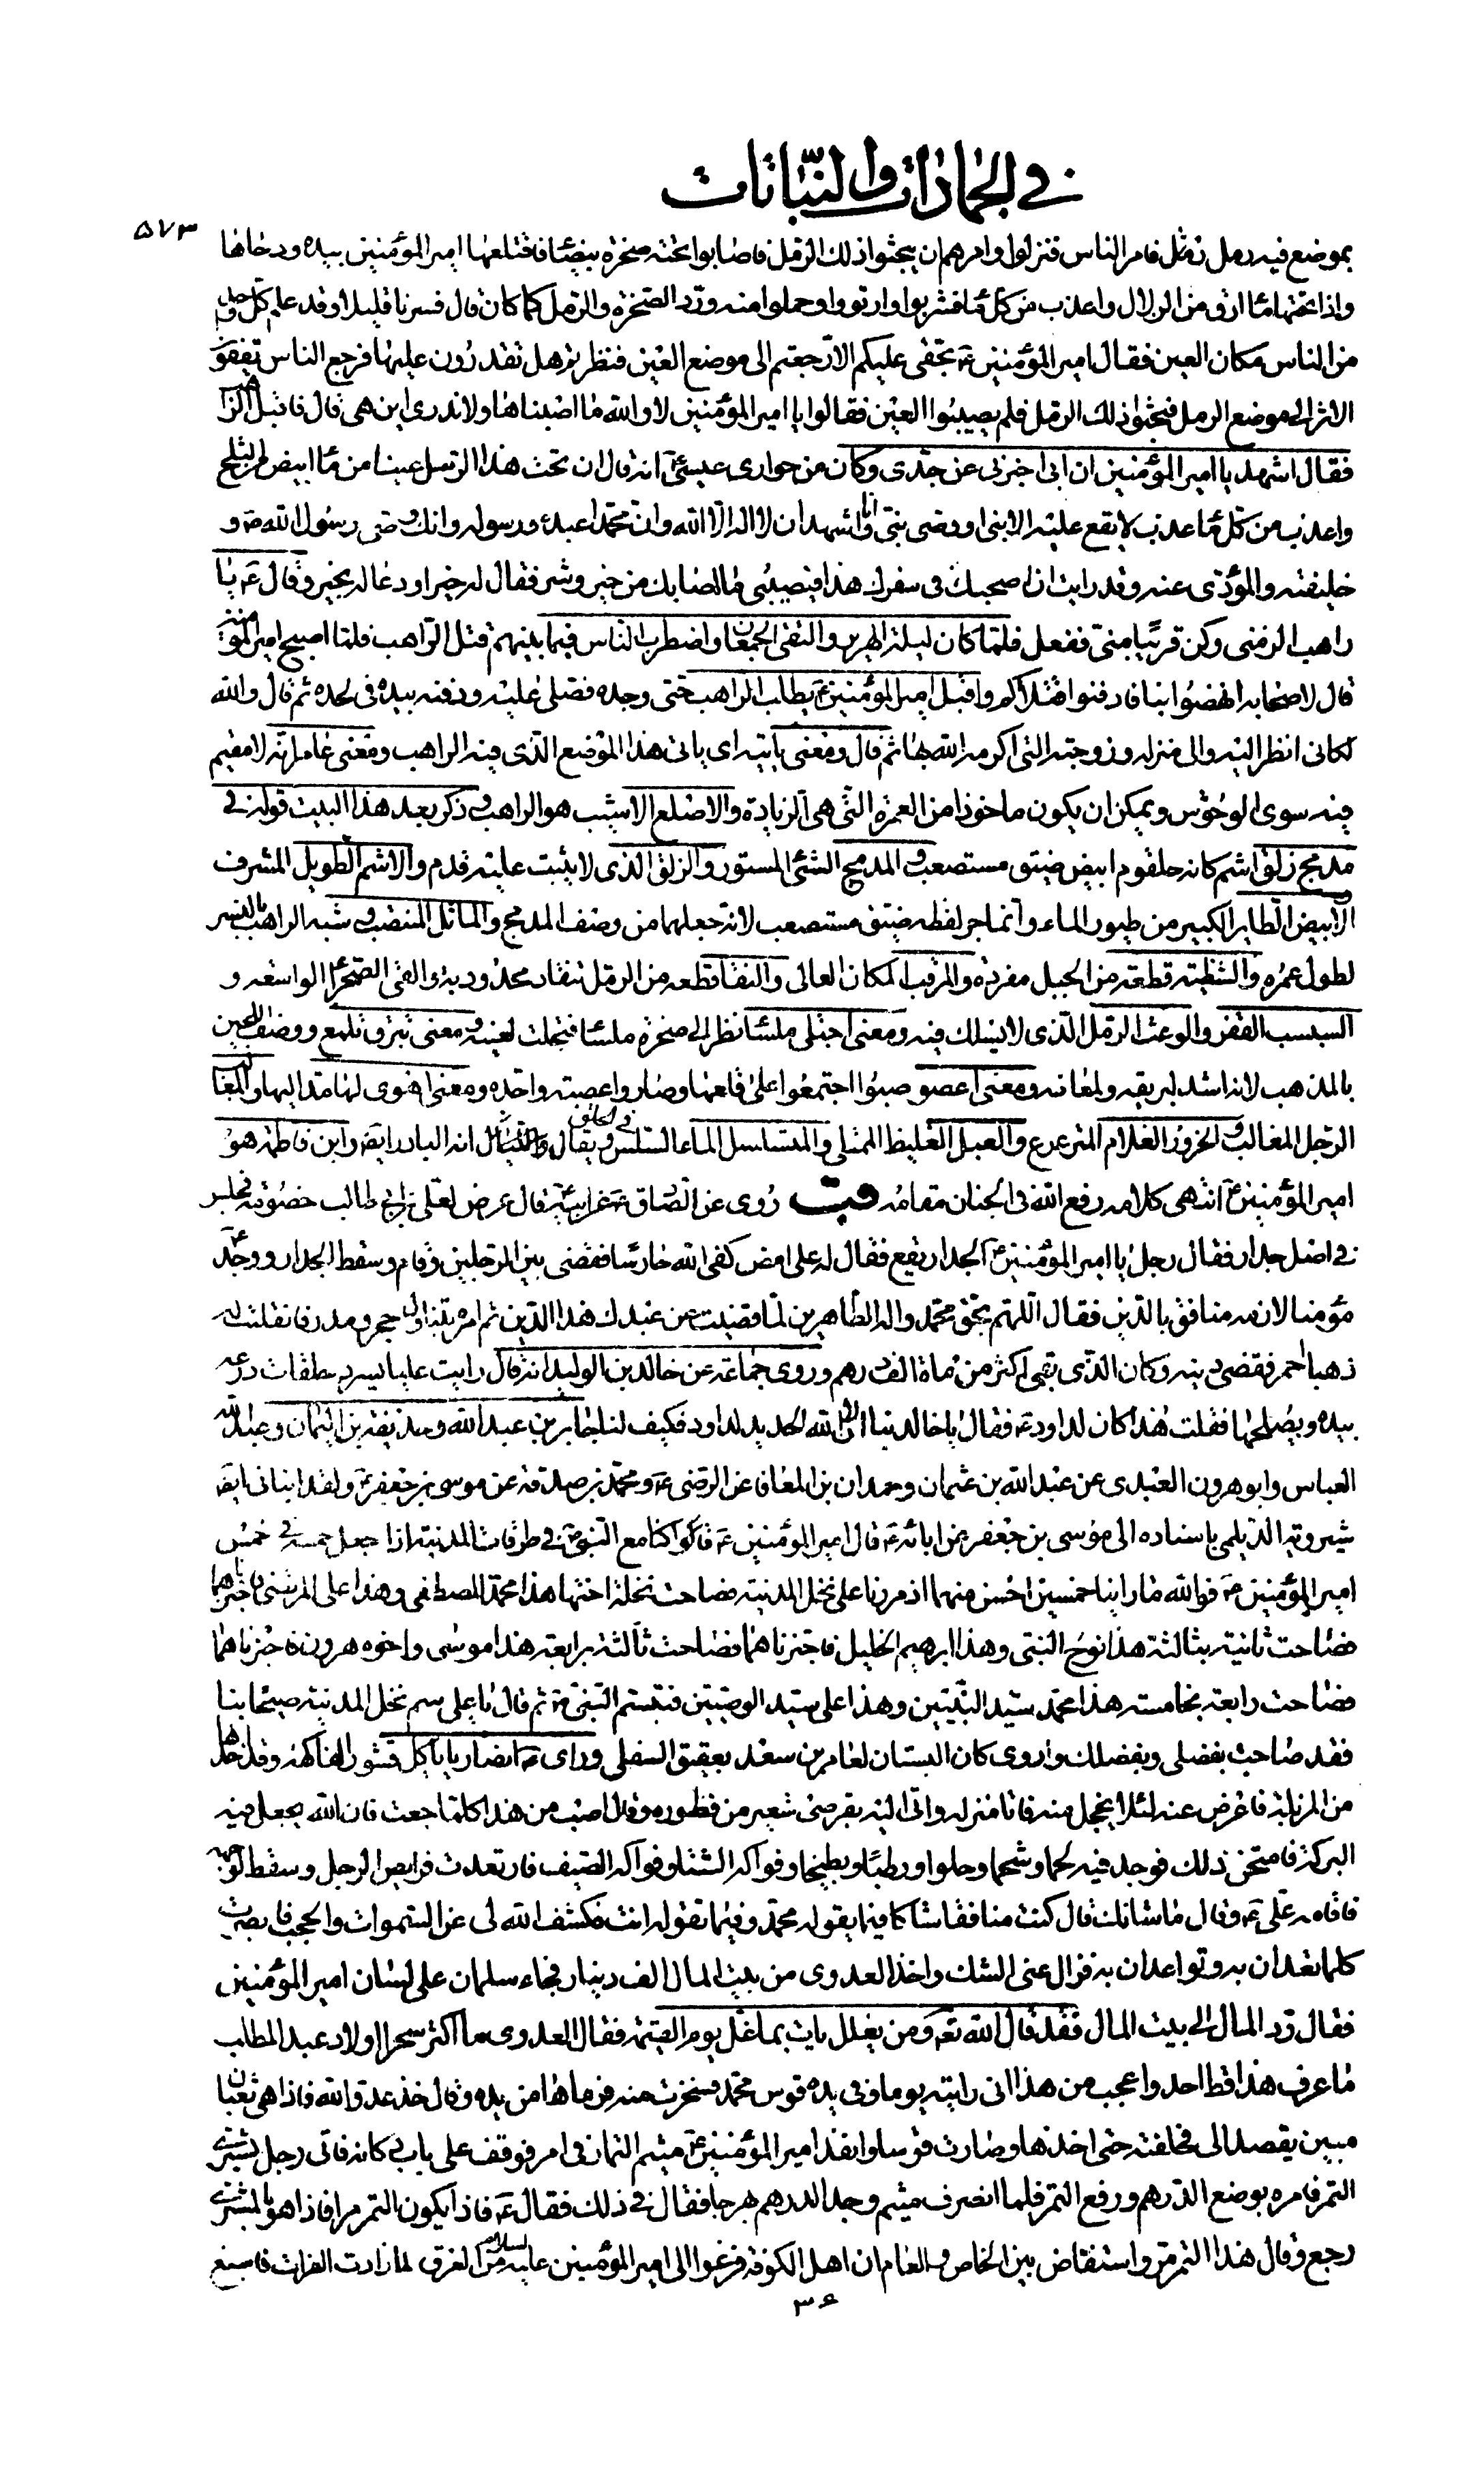 في الجمادات والنباتات
۵۷۳
بموضع فيه رمل فامر الناس فنزلوا وامرهم ان يبحثوا ذلك الرمل فاصابوا تحته صخرة بيضاء فاقتلعها امير المؤمنين بيده ودحاها
واذا تحتها ماء ارق من الزلال واعذب من كل ماء فشربوا وارتووا وحملوا منه ورد الصخرة والرمل كما كان قال فسرنا قليلا وقد علم كل واحد
من الناس مكان العين فقال امير المؤمنين ع بحقي عليكم الا رجعتم الى موضع العين فنظرتم هل تقدرون عليها فرجع الناس يقفون
الاثر الى موضع الرمل فبحثوا ذلك الرمل فلم يصيبوا العين فقالوا يا امير المؤمنين لا والله ما اصبناها ولا ندرى اين هى قال فاقبل الراهب
فقال اشهد يا امير المؤمنين ان ابى اخبرنى عن جدى وكان من حوارى عيسى ع انه قال ان تحت هذا الرمل عينا من ماء ابيض من الثلج
واعذب من كل ماء عذب لا يقع عليه الا نبى او وصى نبى وانا اشهد ان لا اله الا الله وان محمدا عبده ورسوله وانك وصى رسول الله ص و
خليفته والمؤدى عنه وقد رايت ان اصحبك فى سفرك هذا فيصيبنى ما اصابك من خير وشر فقال له خيرا ودعا له بخير وقال ع يا
راهب الزمنى وكن قريبا منى ففعل فلما كان ليلة الهرير والتقى الجمعان واضطرب الناس فيما بينهم قتل الراهب فلما اصبح امير المؤمنين
قال لاصحابه انهضوا بنا فادفنوا قتلاكم واقبل امير المؤمنين ع يطلب الراهب حتى وجده فصلى عليه ودفنه بيده فى لحده ثم قال والله
لكانى انظر اليه والى منزله وزوجته التى اكرمه الله بها ثم قال ومعنى يأتيه اى يأتى هذا الموضع الذى فيه الراهب ومعنى عامر انه لا مقيم
فيه سوى الوحوش ويمكن ان يكون ماخوذا من العمرة التى هى الزيادة والاصلع الاشيب هو الراهب وذكر بعد هذا البيت قوله فى
مدمج زلق اشم كانه حلقوم ابيض ضيق مستصعب والمدمج الشئ المستور والزلق الذى لا يثبت عليه قدم والاشم الطويل المشرف
والابيض الطاير الكبير من طيور الماء وانما جر لفظه ضيق مستصعب لانه جعلهما من وصف المدمج والماثل المنتصب وشبه الراهب بالنسر
لطول عمره والشظية قطعة من الجبل مفردة والمرقب المكان العالى والنقا قطعة من الرمل تنقاد محدودبة والقى الصحراء الواسعة و
السبسب القفر والوعث الرمل الذى لا يسلك فيه ومعنى اجتلى ملساء نظر الى صخرة ملساء فتجلت لعينه ومعنى تبرق تلمع ووصف اللجين
بالمذهب لانه اشد لبريقه ولمعانه ومعنى اعصوصبوا اجتمعوا على قلعها وصاروا عصبة واحدة ومعنى اهوى لها مد اليها والمغالب
الرجل المغالب والحزور الغلام المترعرع والعبل الغليظ الممتلى والمتسلسل الماء السلس فى الحلق ويقال انه البارد ايضا وابن فاطمة هو
امير المؤمنين ع انتهى كلامه رفع الله فى الجنان مقامه قب روى عن الصادق ع عن ابيه ع قال عرض لعلى بن ابى طالب خصومة فجلس
فى اصل جدار فقال رجل يا امير المؤمنين ع الجدار يقع فقال له على امض كفى الله حارسا فقضى بين الرجلين وقام وسقط الجدار ووجد ع
مؤمنا لازمه منافق بالدين فقال اللهم بحق محمد واله الطاهرين لما قضيت عن عبدك هذا الدين ثم امره بتناول حجر ومدر فانقلبت له
ذهبا احمر فقضى دينه وكان الذى بقى اكثر من مأة الف درهم وروى جماعة عن خالد بن الوليد انه قال رايت عليا يسرد حلقات درعه
بيده ويصلحها فقلت هذا كان لداود ع فقال يا خالد بنا الان الله الحديد لداود فكيف لنا جابر بن عبد الله وحذيفة بن اليمان وعبد الله
العباس وابو هرون العبدى عن عبد الله بن عثمان وحمدان بن المعافا عن الرضى ع ومحمد بن صدقة عن موسى بن جعفر ع ولقد انبانى ايضا
شيرويه الديلمى باسناده الى موسى بن جعفر عن ابائه ع قال امير المؤمنين ع قالوا كنا مع النبى ص فى طرقات المدينة اذا جعل خمسه فى خمس
امير المؤمنين ع فوالله ما راينا خمسين احسن منهما اذ مررنا على نخل المدينة فصاحت نخلة اختها هذا محمد المصطفى وهذا على المرتضى فاجتزناهما
فصاحت ثانية بثالثة هذا نوح النبى وهذا ابرهيم الخليل فاجتزناهما فصاحت ثالثة برابعة هذا موسى واخوه هرون فاجتزناهما
فصاحت رابعة بخامسة هذا محمد سيد النبيين وهذا على سيد الوصيين فتبسم النبى ص ثم قال يا على سم نخل المدينة صيحانيا
فقد صاحت بفضلى وبفضلك واروى كان البستان لعامر بن سعد بعقيق السفلى وراى ع انصاريا ياكل قشور الفاكهة وقد اخذها
من المزبلة فاعرض عنه لئلا يخجل منه فاتا منزله واتى اليه بقرصى شعير من فطوره وقال اصب من هذا كلما جعت فان الله يجعل فيه
البركة فامتحن ذلك فوجد فيه لحما وشحما وحلوا ورطبا وبطيخا وفواكه الشتاء وفواكه الصيف فارتعدت فرايص الرجل وسقط لوجهه
فاقامه على ع وقال ما شانك قال كنت منافقا شاكا فيما يقوله محمد وفيما تقوله انت فكشف الله لى عن السموات والحجب فابصرت
كلما تعدان به وتواعدان به فزال عنى الشك واخذ العدوى من بيت المال الف دينار فجاء سلمان على لسان امير المؤمنين
فقال رد المال الى بيت المال فقد قال الله تع ومن يغلل يات بما غل يوم القيمة فقال العدوى ما اكثر سحر اولاد عبد المطلب
ما عرف هذا قط احد واعجب من هذا انى رايته يوما وفى يده قوس محمد فسخرت منه فرماها من يده وقال خذ عدو الله فاذا هى ثعبان
مبين يقصد الى فحلفته حتى اخذها وصارت قوسا وانفذ امير المؤمنين ع ميثم التمار فى امر فوقف على باب دكانه فاتى رجل يشترى
التمر فامره بوضع الدرهم ورفع التمر فلما انصرف ميثم وجد الدرهم بهرجا فقال فى ذلك فقال ع فاذا يكون التمر مرا فاذا هو بالمشترى
رجع وقال هذا التمر مر واستفاض بين الخاص والعام ان اهل الكوفة فزعوا الى امير المؤمنين عليه السلام من الغرق لما زادت الفرات فاسبغ